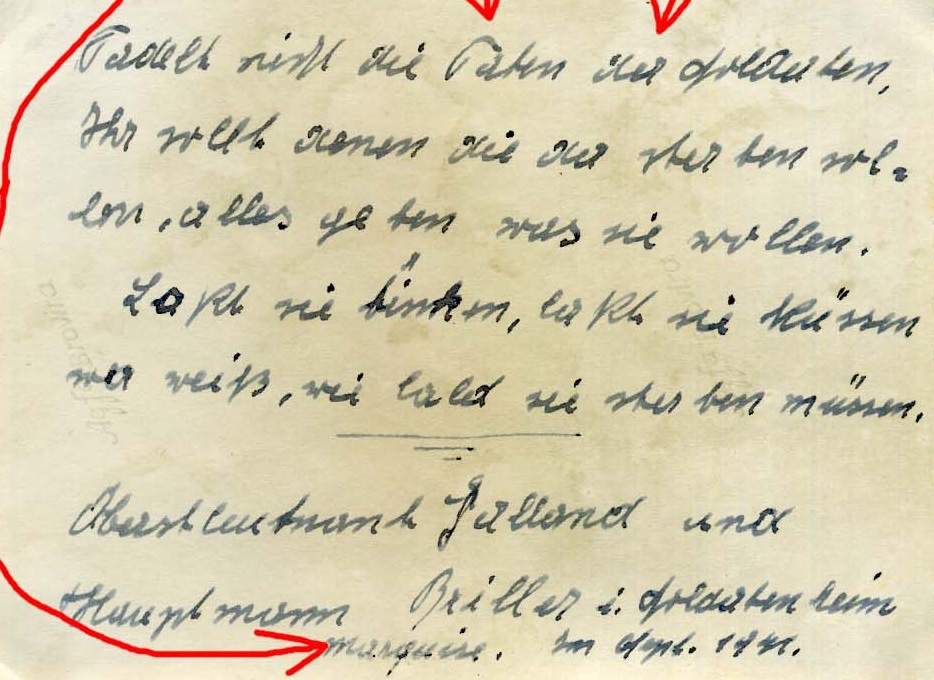 Tadelt nicht die Taten der Soldaten,
Ihr sollt denen die da sterben sol=
len, alles geben was sie wollen.
Laßt sie laßt sie küssen
wer weiß, wie bald sie sterben müssen.
Oberstleutnant Galland und
Hauptmann Briller i. Soldatenheim
marquise. Im Sept. 1941.